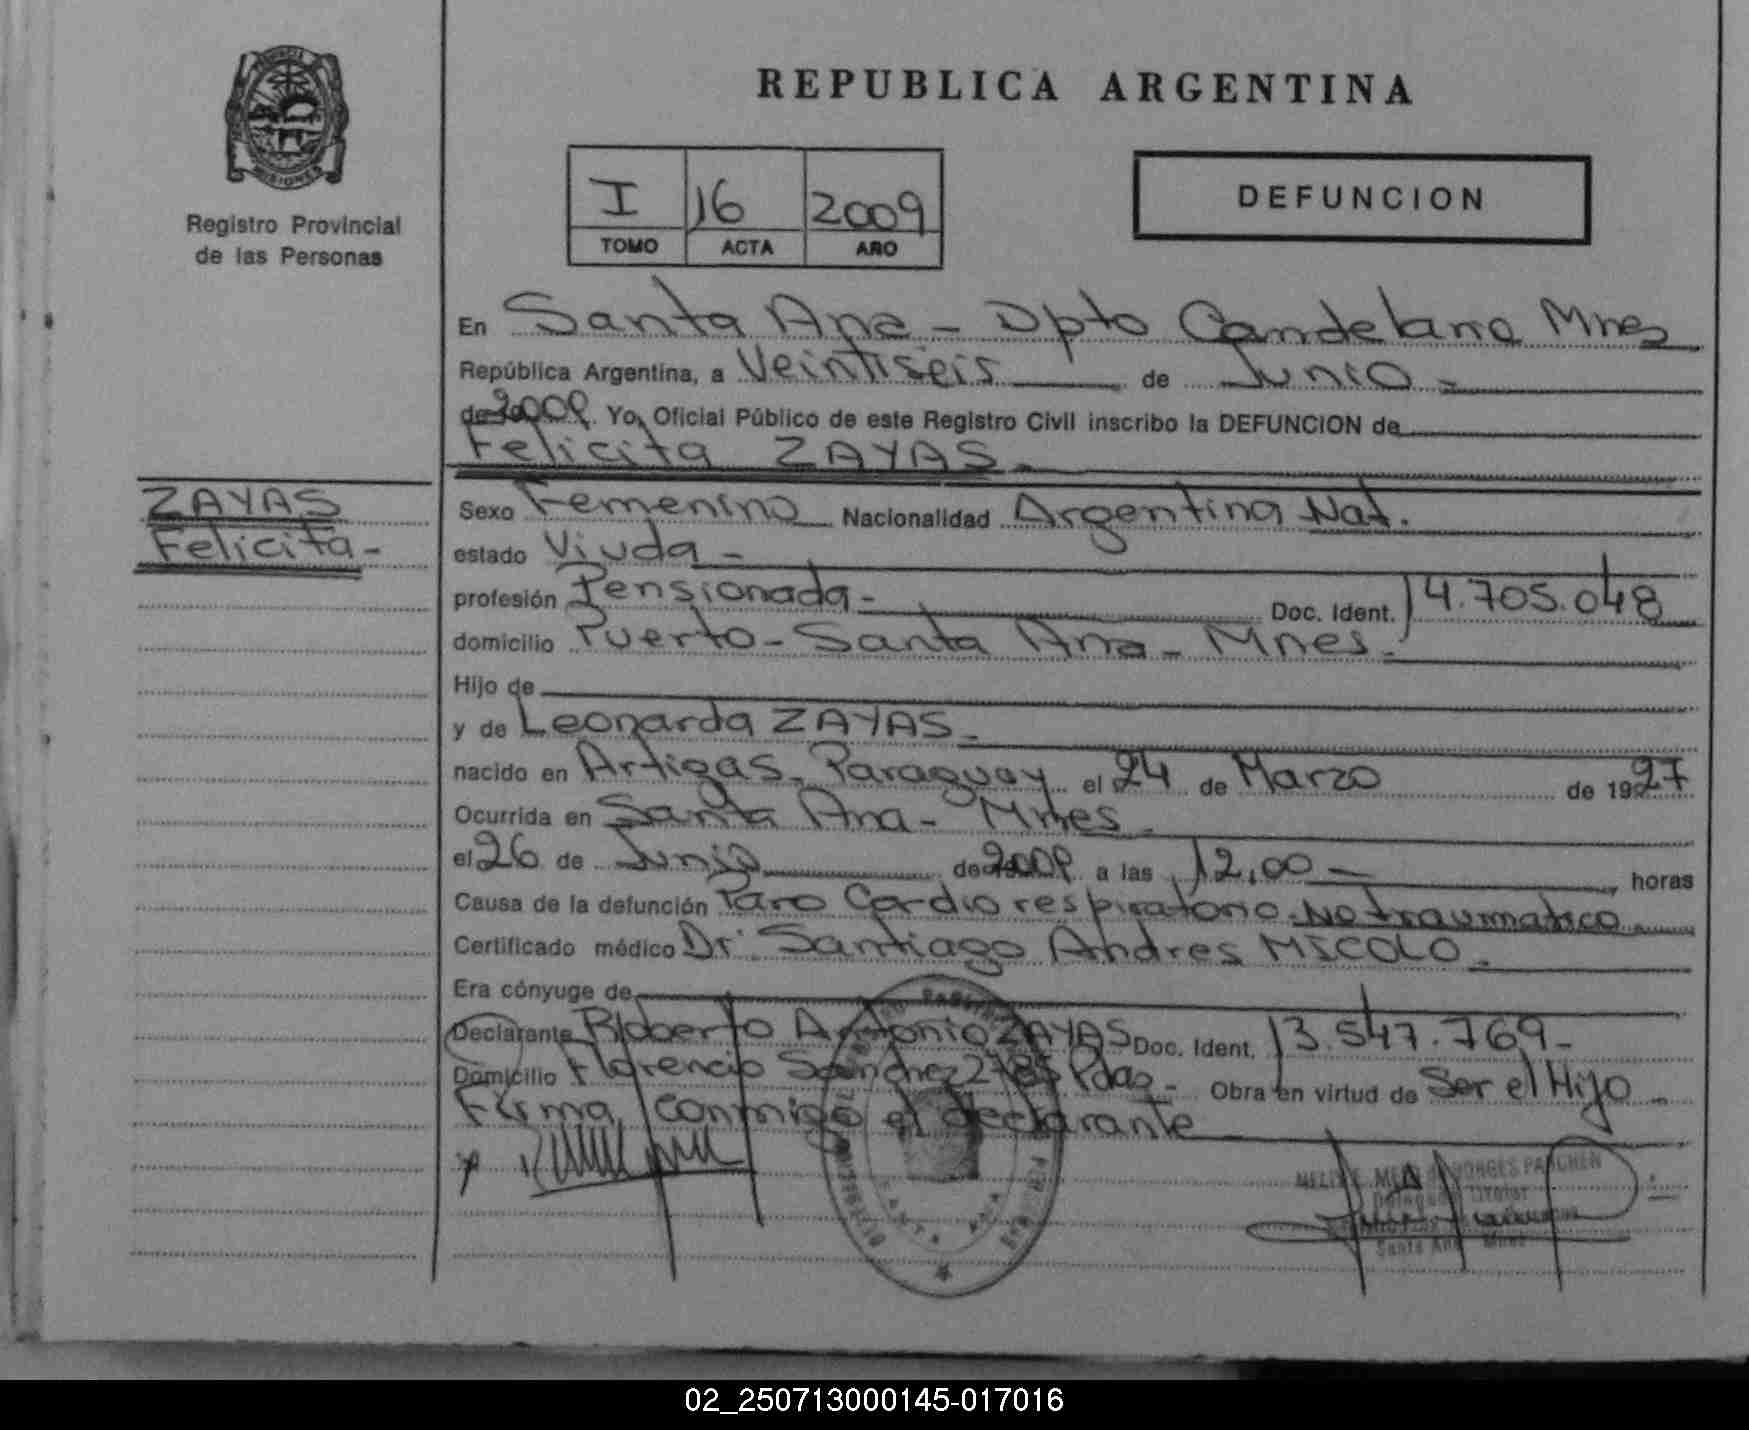 PROVINCIA DE MISIONES
Registro Provincial
de las Personas
REPUBLICA ARGENTINA
I 16 2009
TOMO ACTA AÑO
DEFUNCION
En Santa Ana - Dpto Candelaria Mnes
República Argentina, a Veintiseis de Junio -
de 2009. Yo, Oficial Público de este Registro Civil inscribo la DEFUNCION de
Felicita ZAYAS -
ZAYAS
Felicita -
Sexo Femenino Nacionalidad Argentina Nat.
estado Viuda -
profesión Pensionada - Doc. Ident. 14.705.048
domicilio Puerto - Santa Ana - Mnes -
Hijo de
y de Leonarda ZAYAS -
nacido en Artigas, Paraguay el 24 de Marzo de 1927
Ocurrida en Santa Ana - Mnes -
el 26 de Junio de 2009 a las 12,00 - horas
Causa de la defunción Paro Cardiorespiratorio No traumatico
Certificado médico Dr. Santiago Andres MICOLO -
Era cónyuge de
Declarante Roberto Antonio ZAYAS Doc. Ident. 13.547.769 -
Domicilio Florencio Sanchez 2785 Pdas - Obra en virtud de Ser el Hijo -
Firma conmigo el declarante
SANTA ANA
Santa Ana Mnes
02_250713000145-017016